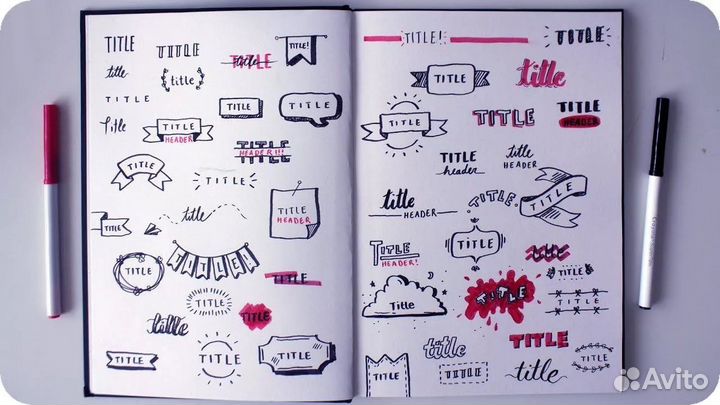 TITLE
TITLE
title
TITLE
TITLE!
title
title
TITLE
TITLE
TITLE
Title
TITLE
HEADER
TITLE
HEADER!!!
TITLE
TITLE
TITLE
HEADER
title
TITLE
TITLE
TITLE
TITLE
title
TITLE
TITLE
TITLE
TITLE
TITLE!
TITLE
TITLE
title
TITLE
TITLE
TITLE
HEADER
TITLE
header
title
HEADER
title
HEADER
TITLE
TITLE
TITLE
HEADER!
TITLE
TITLE
Title
TITLE
TITLE
TITLE
title
TITLE
TITLE
title
TITLE
Avito